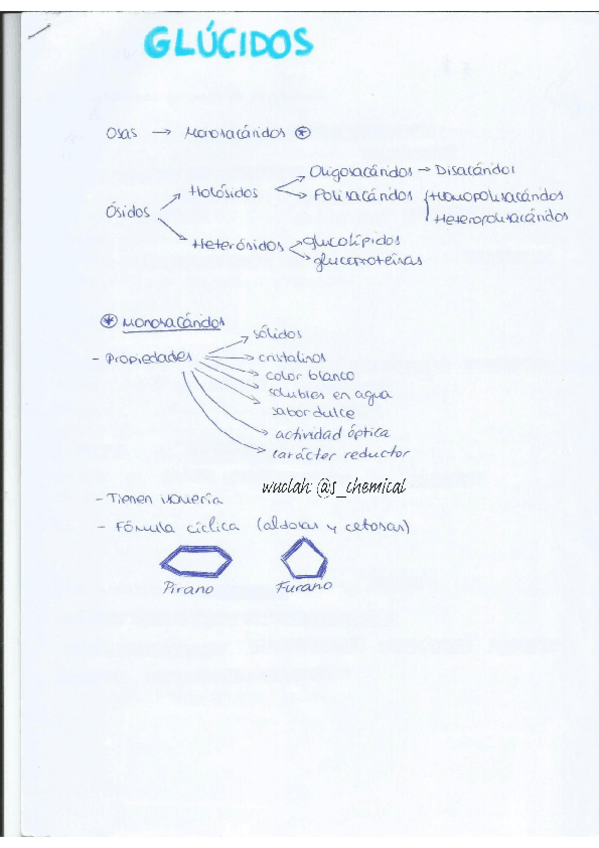 GLÚCIDOS
Osas → Monosacáridos *
Oligosacáridos → Disacáridos
Ósidos Holósidos Polisacáridos Homopolisacáridos
Heteropolisacáridos
Heterósidos glucolípidos
glucoproteínas
* Monosacáridos
- Propiedades sólidos
cristalinos
color blanco
solubles en agua
sabor dulce
actividad óptica
carácter reductor
wuolah: @s_chemical
- Tienen isomería
- Fórmula cíclica (aldosas y cetosas)
Pirano Furano